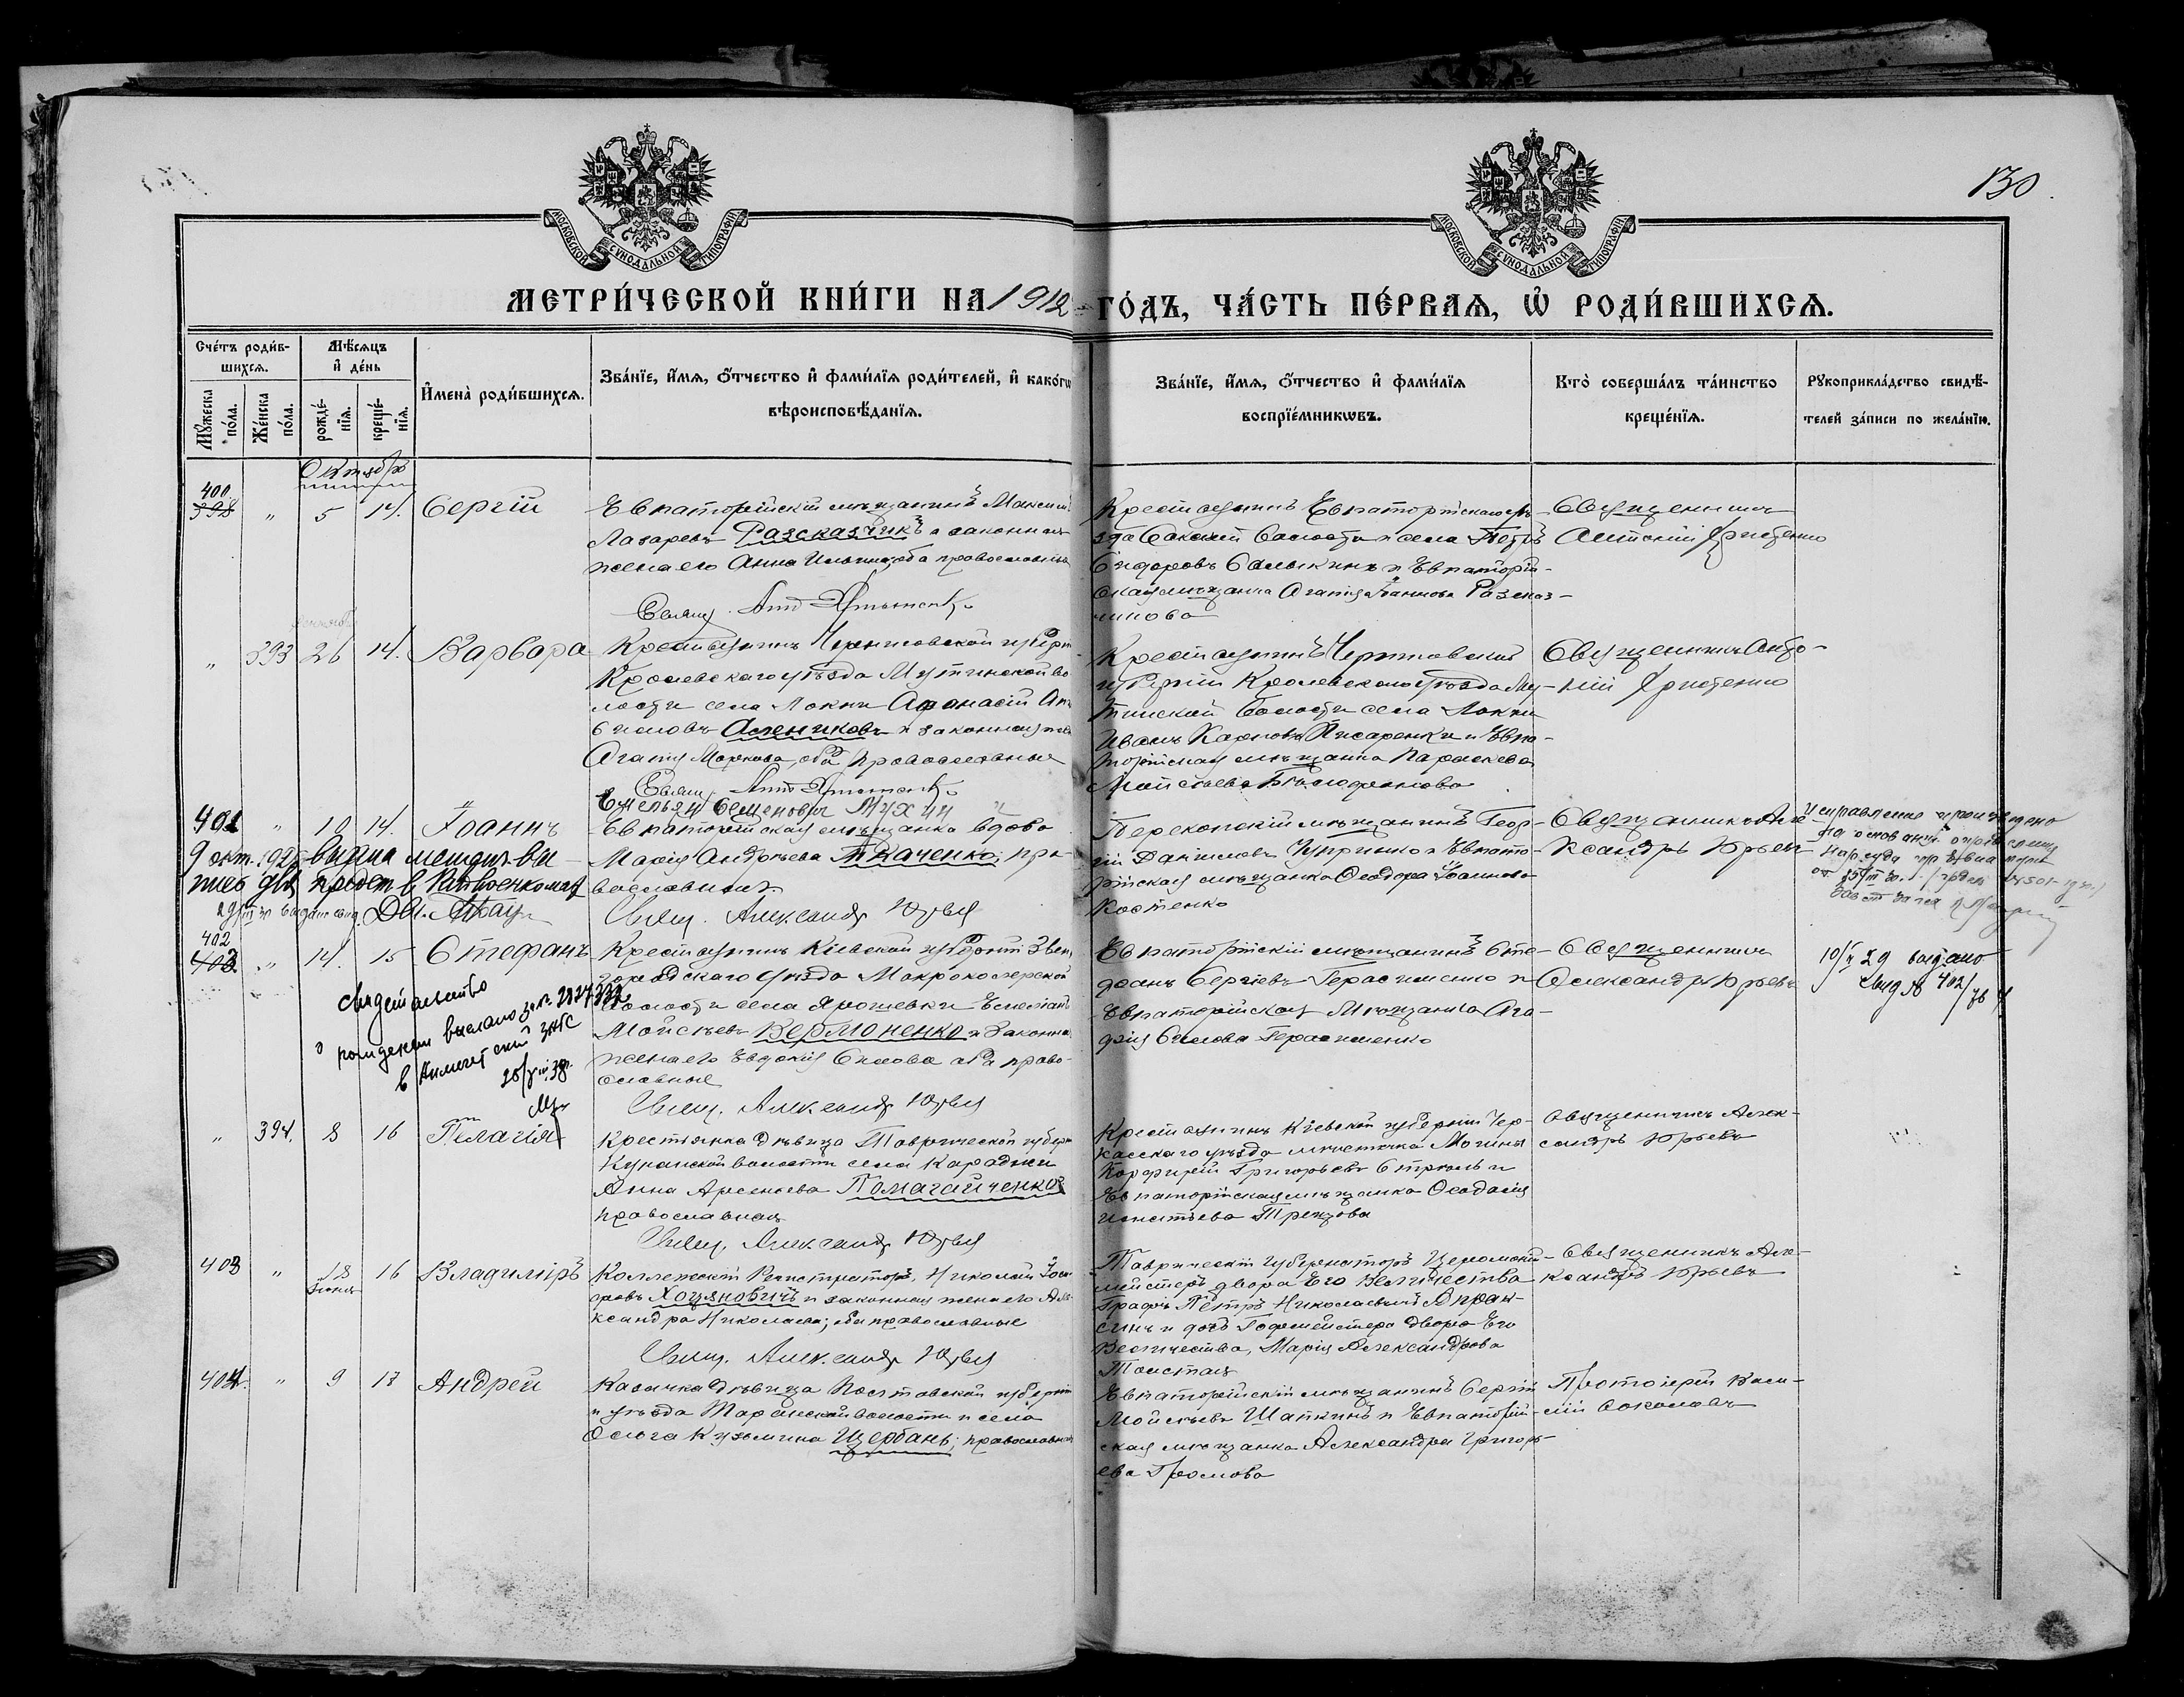 130
МОСКОВСКОЙ СѴНОДАЛЬНОЙ ТИПОГРАФІИ
МОСКОВСКОЙ СѴНОДАЛЬНОЙ ТИПОГРАФІИ
МЕТРИ́ЧЕСКОЙ КНИ́ГИ НА 1912 ГО́ДЪ, ЧА́СТЬ ПЕ́РВАѦ, Ѡ РОДИ́ВШИХСѦ.
Сче́тъ роди́в-
шихсѧ.
Мꙋ́жеска по́ла.
Же́нска по́ла.
Мѣ́сѧцъ
и҆ де́нь
рожде́-
нїѧ.
креще́-
нїѧ.
И҆мена̀ роди́вшихсѧ.
Зва́нїе, и҆́мѧ, ѻ҆́тчество и҆ фами́лїѧ роди́телей, и҆ како́гѡ
вѣроисповѣ́данїѧ.
Зва́нїе, и҆́мѧ, ѻ҆́тчество и҆ фами́лїѧ
воспрїе́мникѡвъ.
Кто̀ соверша́лъ та́инство
креще́нїѧ.
Рꙋкоприкла́дство свидѣ́-
телей за́писи по жела́нїю.
Октябрь
400.
398 " 5 14. Сергій
Евпаторійскій мѣщанинъ Максимъ
Лазаревъ Разсказчикъ и законная
жена его Анна Ильина, оба православные
Свящ. Ант. Христенко
Крестьянинъ Евпаторійскаго уѣ-
зда Сакской волости и села Петръ
Сидоровъ Салыкинъ и Евпаторій-
ская мѣщанка Агапія Іоаннова Разсказ-
чикова
Священникъ
Антоній Христенко
" 393 26 14. Варвара
Крестьянинъ Черниговской губерн
Кролевецкаго уѣзда Мутинской во
лости села Локни Афанасій
Алейниковъ и законная жена
Агапія Маркова, оба православные
Свящ. Ант. Христенко
Крестьянинъ Черниговской
губерніи Кролевецкаго уѣзда Му-
тинской волости села Локни
Иванъ Карповъ Писаренко и Евпа-
торійская мѣщанка Параскева
Моисеева
Священникъ Анто-
ній Христенко
Емельян Семенович Мухин
401 " 10 14. Іоаннъ
Евпаторійская мѣщанка вдова
Марія Андреева Ткаченко, пра-
вославная
Свящ. Александр Юрьев
9 окт. 1925 выдана метрич. вы-
пись для предст. в Райвоенкомат
Перекопскій мѣщанинъ Геор-
гій Даниловъ Чуприненко и Евпато-
рійская мѣщанка Феодора Іоаннова
Костенко
Священникъ Але-
ксандръ Юрьевъ
Исправление произведено
на основании определения
Нарсуда гор. Евпатории
402
403. " 14. 15 Стефанъ
Крестьянинъ Кіевской губерніи Звени
городскаго уѣзда Мокрокалигорской
волости села Ярошевки
Моисеевъ Вермоненко и законная
жена его Евдокія оба право-
славные
Свящ. Александр Юрьев
свидетельство
о рождении выслано за №
в ЗАГС
Евпаторійскій мѣщанинъ Сте-
фанъ Сергѣевъ Герасименко и
Евпаторійская мѣщанка Ага-
фія Герасименко
Священникъ
Александръ Юрьевъ
29 выдано
свид № 402/
" 394. 8 16 Пелагія
Крестьянка дѣвица Таврической губерн
Кунанской волости села Караджи
Анна Арсеньева Помагайченкова
православная
Свящ. Александр Юрьев
Крестьянинъ Кіевской губерніи Чер-
касскаго уѣзда мѣстечка
Порфирій Григорьевъ и
Евпаторійская мѣщанка Феодосія
Игнатьева
Священникъ Алек-
сандръ Юрьевъ
403 " 18
Іюня 16 Владиміръ
Коллежскій Регистраторъ, Николай
Хоцяновичъ и законная жена его Але
ксандра Николаева, оба православные
Свящ. Александр Юрьев
Таврическій Губернаторъ Церемоній-
мейстеръ двора Его Величества
Графъ Петръ Николаевичъ Апрак-
синъ и дочь Гофмейстера двора Его
Величества, Марія Александрова
Толстая
Священникъ Але-
ксандръ Юрьевъ
404. " 9 17 Андрей
Казачка дѣвица Полтавской губерніи
и уѣзда волости и села
Ольга Кузьмина Щербань; православная
Евпаторійскій мѣщанинъ Сергій
Моисеевъ Шапкинъ и Евпаторій-
ская мѣщанка Александра Григорь-
ева Громова
Протоіерей Васи-
лій Соколовъ